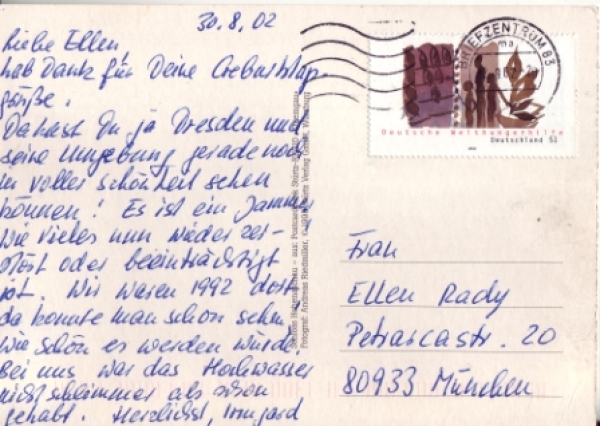 30.8.02
Liebe Ellen,
hab Dank für Deine Geburtstags-
grüße.
Da hast Du ja Dresden und
seine Umgebung gerade noch
in voller Schönheit sehen
können! Es ist ein Jammer
wie vieles nun wieder zer-
stört oder beeinträchtigt
ist. Wir waren 1992 dort
da konnte man schon sehen
wie schön es werden würde.
Bei uns war das Hochwasser
nicht schlimmer als schon
gehabt. Herzlichst, Irmgard
BRIEFZENTRUM 83
Deutsche Welthungerhilfe
Deutschland 51
Fotograf: Andreas Riedmiller,
Frau
Ellen Rady
Petrarcastr. 20
80933 München